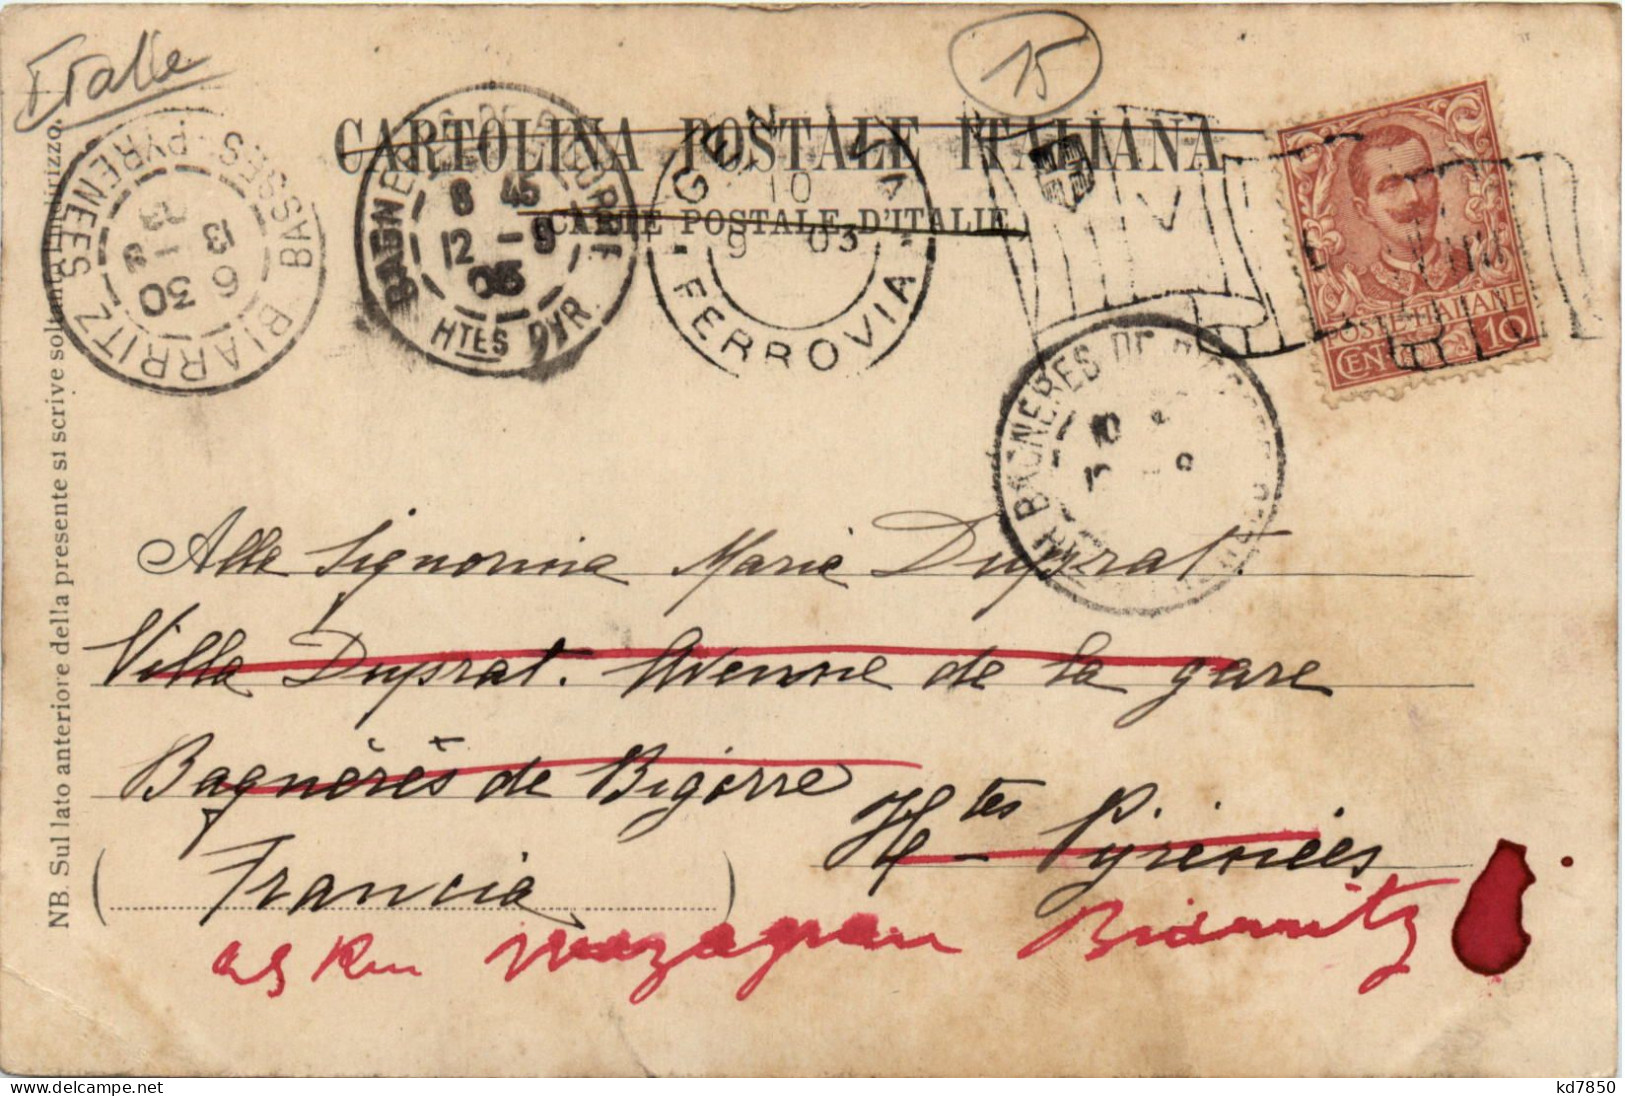 Italie
15
CARTOLINA POSTALE ITALIANA
CARTE POSTALE D'ITALIE
BIARRITZ BASSES-PYRENEES
6 30
13 - 9
03
BAGNERES DE BIGORRE
8 45
12 - 9
03
HTES PYR.
GENOVA
10
9 03
FERROVIA
POSTE ITALIANE
CENT. 10
BAGNERES DE BIGORRE
10
NB. Sul lato anteriore della presente si scrive soltanto l'indirizzo.
Alla Signorina Marie Duprat.
Villa Duprat. Avenue de la gare
Bagnères de Bigorre
Htes Pyrénées
(Francia)
Rue Mazagran Biarritz
kd7850